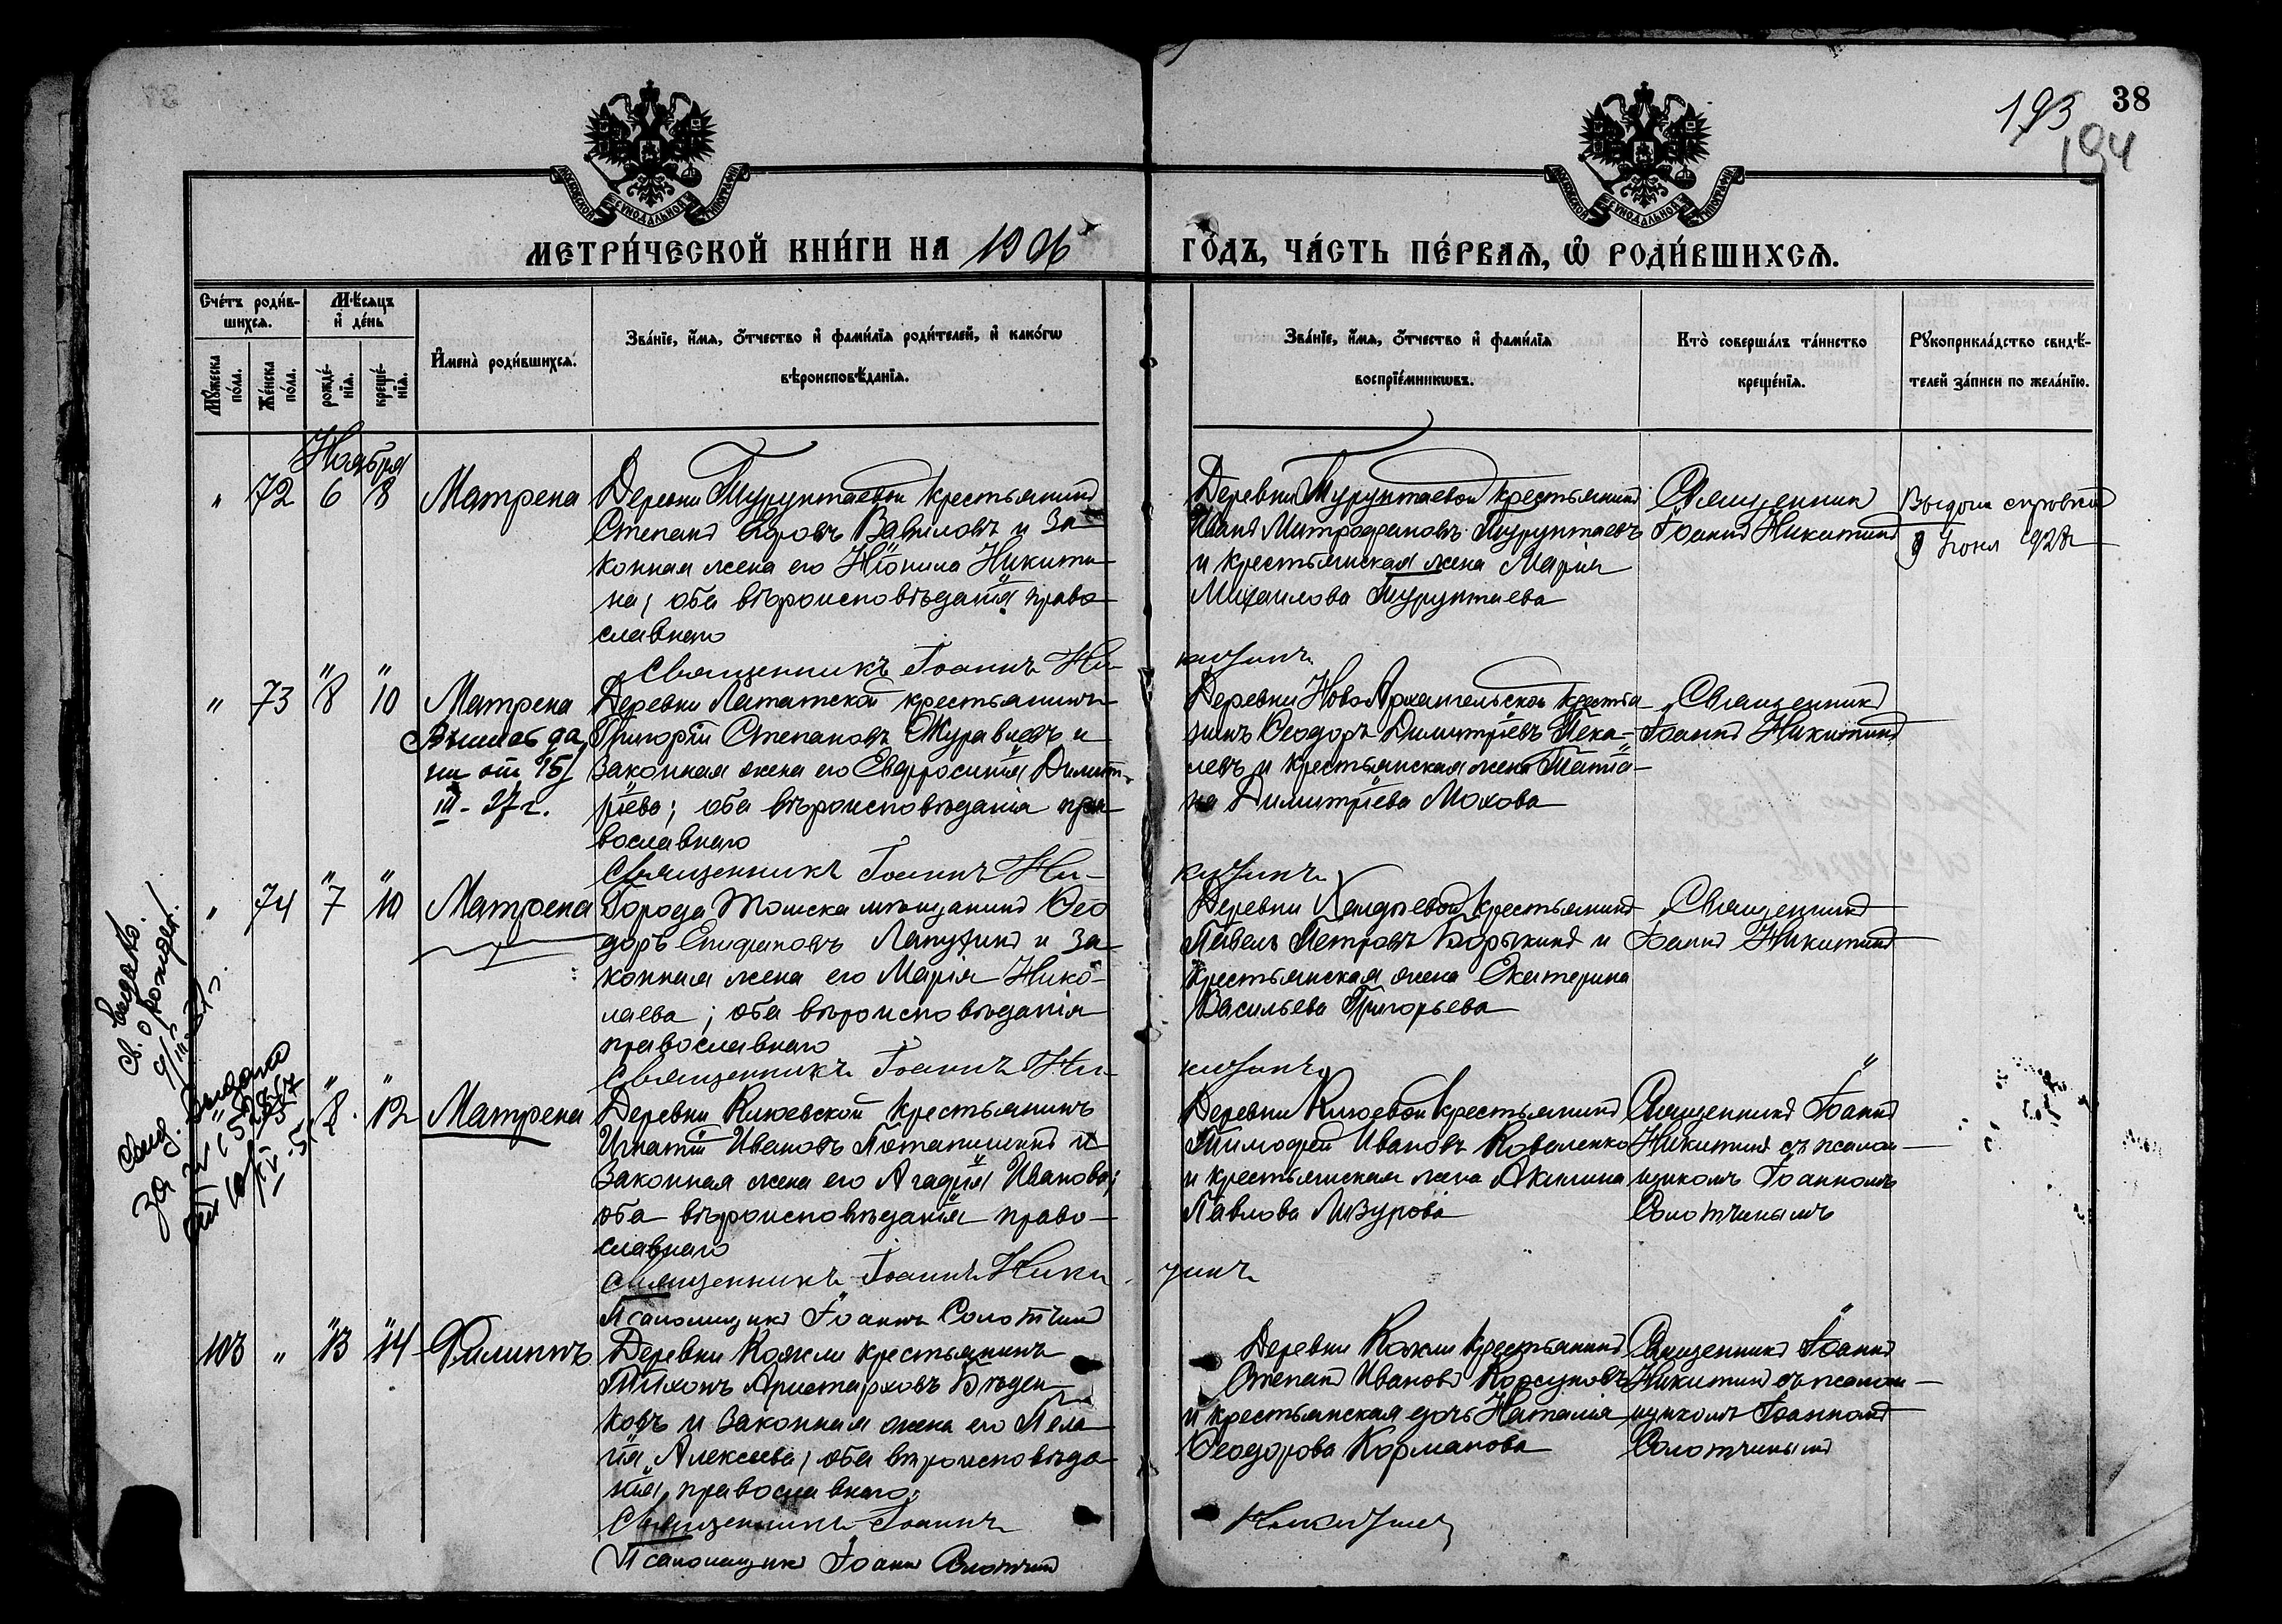 38
193
194
МОСКОВСКОЙ СѴНОДАЛЬНОЙ ТИПОГРАФІИ
МОСКОВСКОЙ СѴНОДАЛЬНОЙ ТИПОГРАФІИ
МЕТРИ́ЧЕСКОЙ КНИ́ГИ НА 1906
ГО́ДЪ, ЧА́СТЬ ПЕ́РВАѦ, Ѡ҆ РОДИ́ВШИХСѦ.
Сче́тъ роди́в-
шихсѧ.
Мѣ́сѧцъ
и҆ де́нь
Мꙋ́жеска
по́ла.
Же́нска
по́ла.
рожде́-
нїѧ.
креще́-
нїѧ.
И҆мена̀ роди́вшихсѧ.
Зва́нїе, и҆́мѧ, ѻ҆́тчество и҆ фами́лїѧ роди́телей, и҆ како́гѡ
вѣроисповѣ́данїѧ.
Зва́нїе, и҆́мѧ, ѻ҆́тчество и҆ фами́лїѧ
воспрїе́мникѡвъ.
Кто̀ соверша́лъ та́инство
креще́нїѧ.
Рꙋкоприкла́дство свидѣ́-
телей за́писи по жела́нїю.
Ноября
" 72 6 8 Матрена
Деревни Турунтаевой крестьянинъ
Степанъ Егоровъ Вавиловъ и за-
конная жена его Нїонила Никити-
на; оба вѣроисповѣданія право-
славнаго
Священникъ Іоаннъ Ни-
Деревни Турунтаевой крестьянинъ
Иванъ Митрофановъ Турунтаевъ
и крестьянская жена Марія
Михаилова Турунтаева
китинъ
Священникъ
Іоаннъ Никитинъ
Выдана справка
9 Іюня 1928
" 73 8 10 Матрена
от 15/
III - 27 г.
Деревни Лататской крестьянинъ
Григорій Степановъ Журавлевъ и
законная жена его Евфросинія Димит-
ріева; оба вѣроисповѣданія пра-
вославнаго
Священникъ Іоаннъ Ни-
Деревни Ново Архангельской крестья-
нинъ Ѳеодоръ Димитріевъ
и крестьянская жена Татіа-
на Димитріева Мохова
китинъ
Священникъ
Іоаннъ Никитинъ
" 74 7 10 Матрена
Города Томска мѣщанинъ Ѳео
доръ Епифановъ Лапухинъ и за-
конная жена его Марія Нико-
лаева; оба вѣроисповѣданія
православнаго
Священникъ Іоаннъ Ни-
Деревни Халдѣевой крестьянинъ
Павелъ Петровъ Борыкинъ и
крестьянская жена Екатерина
Васильева Григорьева
китинъ
Священникъ
Іоаннъ Никитинъ
выдано.
св. о рожден.
Свид. выдано
8 12 Матрена
Деревни Киюевской крестьянинъ
Игнатій Ивановъ Потапишинъ и
законная жена его Агафія Иванова;
оба вѣроисповѣданія право-
славнаго
Священникъ Іоаннъ Ники
Псаломщикъ Іоаннъ Солотчинъ
Деревни Киюевой крестьянинъ
Тимофей Ивановъ Коваленко
и крестьянская жена Акилина
Павлова Мизурова
тинъ
Священникъ Іоаннъ
Никитинъ съ псалом-
щикомъ Іоанномъ
Солотчинымъ
103 " 13 14 Филиппъ
Деревни Кожли крестьянинъ
Тихонъ Аристарховъ Бѣден-
ковъ и законная жена его Пела-
гія Алексеева; оба вѣроисповѣда-
нія православнаго;
Священникъ Іоаннъ
Псаломщикъ Іоаннъ Солотчинъ
Деревни Кожли крестьянинъ
Степанъ Ивановъ Корсуновъ
и крестьянская дочь Наталія
Ѳеодорова Корманова
Никитинъ
Священникъ Іоаннъ
Никитинъ съ псалом-
щикомъ Іоанномъ
Солотчинымъ